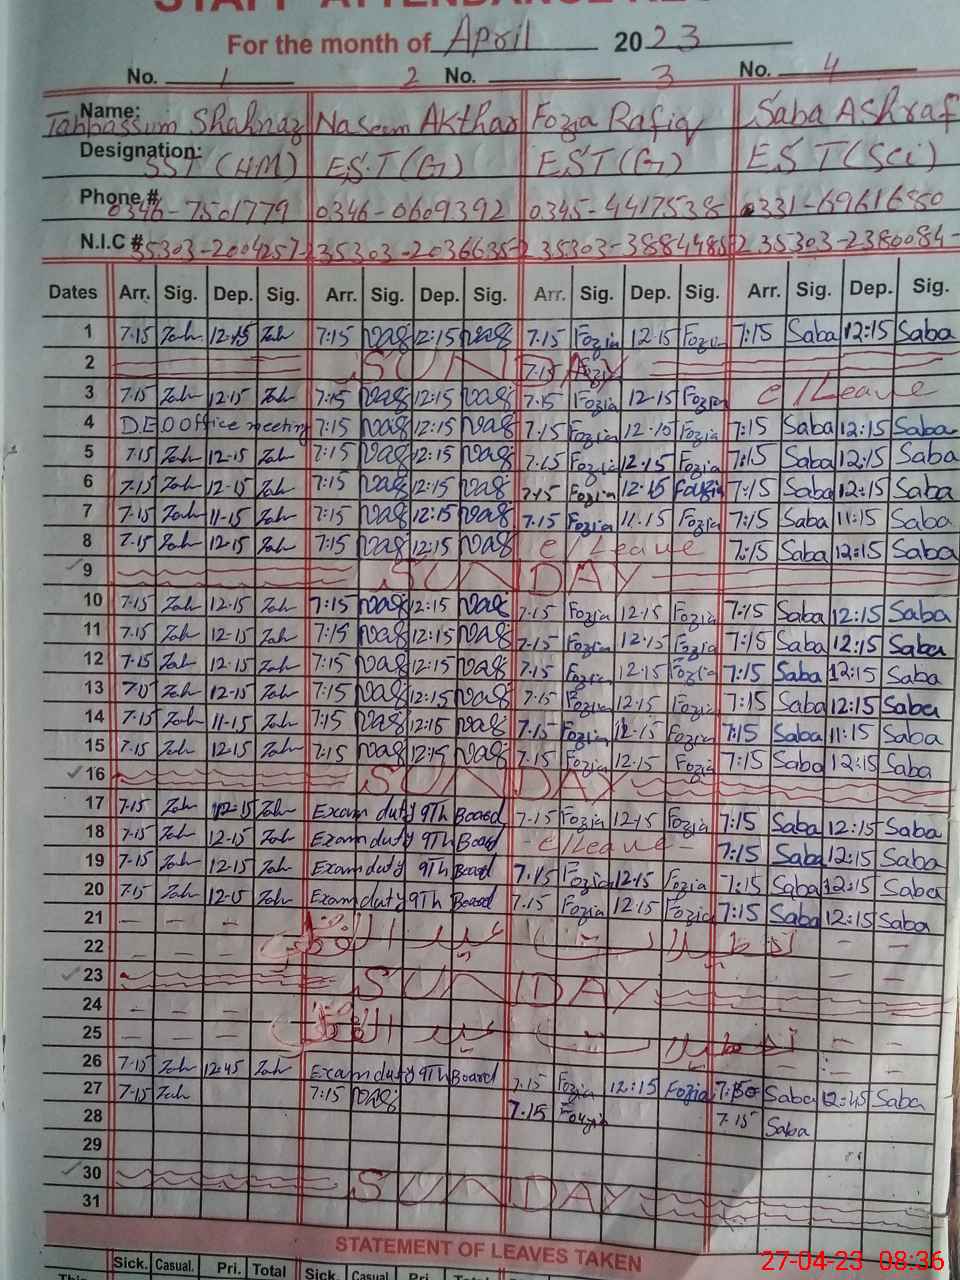 STAFF ATTENDANCE RE
For the month of April 2023
No. 1 2 No. 3 No. 4
Name: Tabbassum Shahnaz Naseem Akthar Fozia Rafiq Saba Ashraf
Designation: SST (HM) E.S.T (G) E.S.T (G) E.S.T (Sci)
Phone # 0346-7501779 0346-0609392 0345-4417538 0331-6961680
N.I.C # 35303-2004257- 35303-2036635- 35303-3884485 35303-2380084-
Dates Arr. Sig. Dep. Sig. Arr. Sig. Dep. Sig. Arr. Sig. Dep. Sig. Arr. Sig. Dep. Sig.
1 7:15 Zah 12:15 Zah 7:15 Nas 12:15 Nas 7:15 Fozia 12:15 Fozia 7:15 Saba 12:15 Saba
2 SUNDAY 7:15
3 7:15 Zah 12:15 Zah 7:15 Nas 12:15 Nas 7:15 Fozia 12:15 Fozia c/Leave
4 D.E.O office meeting 7:15 Nas 12:15 Nas 7:15 Fozia 12:15 Fozia 7:15 Saba 12:15 Saba
5 7:15 Zah 12:15 Zah 7:15 Nas 12:15 Nas 7:15 Fozia 12:15 Fozia 7:15 Saba 12:15 Saba
6 7:15 Zah 12:15 Zah 7:15 Nas 12:15 Nas 7:15 Fozia 12:15 Fozia 7:15 Saba 12:15 Saba
7 7:15 Zah 11:15 Zah 7:15 Nas 12:15 Nas 7:15 Fozia 11:15 Fozia 7:15 Saba 11:15 Saba
8 7:15 Zah 12:15 Zah 7:15 Nas 12:15 Nas c/Leave 7:15 Saba 12:15 Saba
9 SUNDAY
10 7:15 Zah 12:15 Zah 7:15 Nas 12:15 Nas 7:15 Fozia 12:15 Fozia 7:15 Saba 12:15 Saba
11 7:15 Zah 12:15 Zah 7:15 Nas 12:15 Nas 7:15 Fozia 12:15 Fozia 7:15 Saba 12:15 Saba
12 7:15 Zah 12:15 Zah 7:15 Nas 12:15 Nas 7:15 Fozia 12:15 Fozia 7:15 Saba 12:15 Saba
13 7:15 Zah 12:15 Zah 7:15 Nas 12:15 Nas 7:15 Fozia 12:15 Fozia 7:15 Saba 12:15 Saba
14 7:15 Zah 11:15 Zah 7:15 Nas 12:15 Nas 7:15 Fozia 12:15 Fozia 7:15 Saba 11:15 Saba
15 7:15 Zah 12:15 Zah 7:15 Nas 12:15 Nas 7:15 Fozia 12:15 Fozia 7:15 Saba 12:15 Saba
16 SUNDAY
17 7:15 Zah 12:15 Zah Exam duty 9Th Board 7:15 Fozia 12:15 Fozia 7:15 Saba 12:15 Saba
18 7:15 Zah 12:15 Zah Exam duty 9Th Board - c/Leave - 7:15 Saba 12:15 Saba
19 7:15 Zah 12:15 Zah Exam duty 9Th Board 7:15 Fozia 12:15 Fozia 7:15 Saba 12:15 Saba
20 7:15 Zah 12:15 Zah Exam duty 9Th Board 7:15 Fozia 12:15 Fozia 7:15 Saba 12:15 Saba
21 - - - تعطیلات عید الفطر - -
22 - - - - -
23 SUNDAY - -
24 - - -
25 - - - تعطیلات عید الفطر - -
26 7:15 Zah 12:45 Zah Exam duty 9Th Board 7:15 Fozia 12:15 Fozia 7:30 Saba 12:45 Saba
27 7:15 Zah 7:15 Nas 7:15 Fozia 7:15 Saba
28
29
30 SUNDAY
31
STATEMENT OF LEAVES TAKEN
Sick. Casual. Pri. Total Sick. Casual Pri. Total
27-04-23 08:36